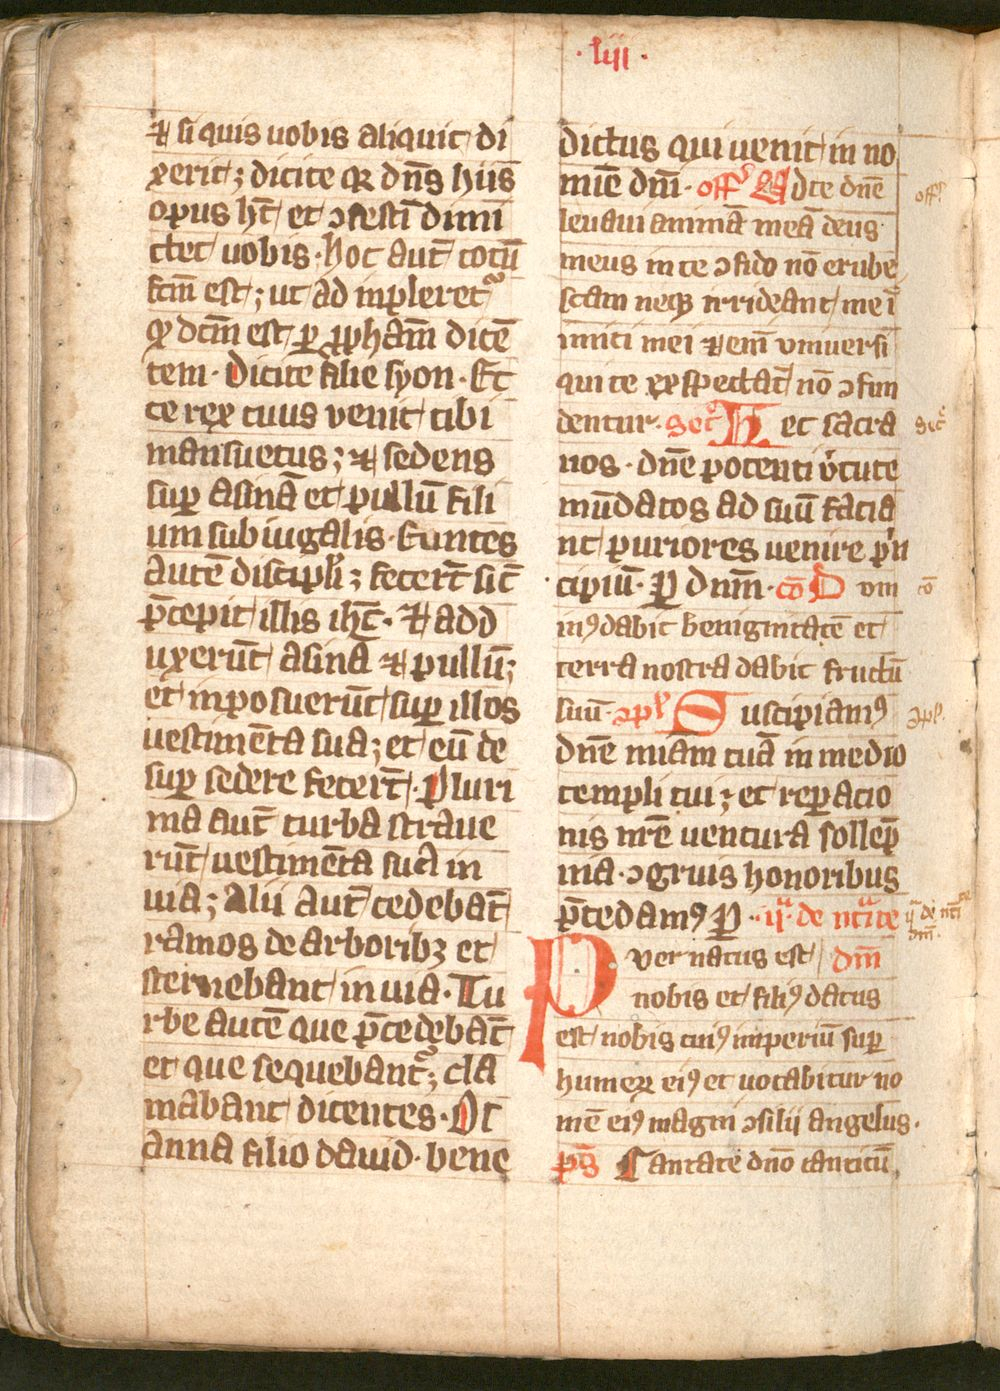 · liii ·
⁊ si quis uobis aliquit di
xerit; dicite qꝛ dn̄s hiis
opus hꝫt et ɔfesti dimi
ctet uobis · hoc aut̄ totū
fcm̄ est; ut ad inpleret᷑
qď dcm̄ est ꝑ ꝓpham̄ dicē
tem · Dicite filie syon · Ec
ce rex tuus venit tibi
mansuetus; ⁊ sedens
suꝑ asinā et pullū fili
um subiugalis · Euntes
autē discipĺi; fecerūt sic̄
p̄cepit illis ihc̄ · ⁊ add
uxerūt asinā ⁊ pullū;
et inposuerūt suꝑ illos
uestimēta sua; et eū de
suꝑ sedere fecerūt · Pluri
ma aut̄ turba straue
rūt uestimēta sua in
uia; Alii aut̄ cedebāt
ramos de arboribꝫ et
sternebant in uia · Tu
rbe autē que p̄cedebāt
et que sequebant᷑; cla
mabant dicentes · Os
anna filio dauid · bene
dictus qui uenit in no
mīe dn̄i · off᷑ Ad te dn̄e
leuaui animā meā deus
meus in te ɔfido nō erube
scam neqꝫ irrideant me ī
imici mei ⁊ em̄ vniuersi
qui te exspectāt nō ɔfun
dentur · secͬ Hec sacra
nos · dn̄e potenti v̓tute
mūdatos ad suū facia
nt puriores uenire p̓n
cipiū · ꝑ dnm̄ · cō D om
inꝰ dabit benignitatē et
terra nostra dabit fructū
suū · ɔpĺ Suscipiamꝰ
dn̄e miām tuā in medio
templi tui; et reꝑacio
nis nr̄e uentura sollēp
nia · ɔgruis honoribus
p̄cedamꝰ ꝑ · ijᵃ · de nc̄ite
Pver natus est dn̄i
nobis et filiꝰ datus
est nobis cuiꝰ imperiū suꝑ
humeꝝ eiꝰ et uocabitur no
mē eiꝰ magni ɔsilii angelus ·
ps̄ Cantate dn̄o canticū
off᷑
secͬ
cō
ɔpĺ
ijᵃ de nc̄i
dn̄i